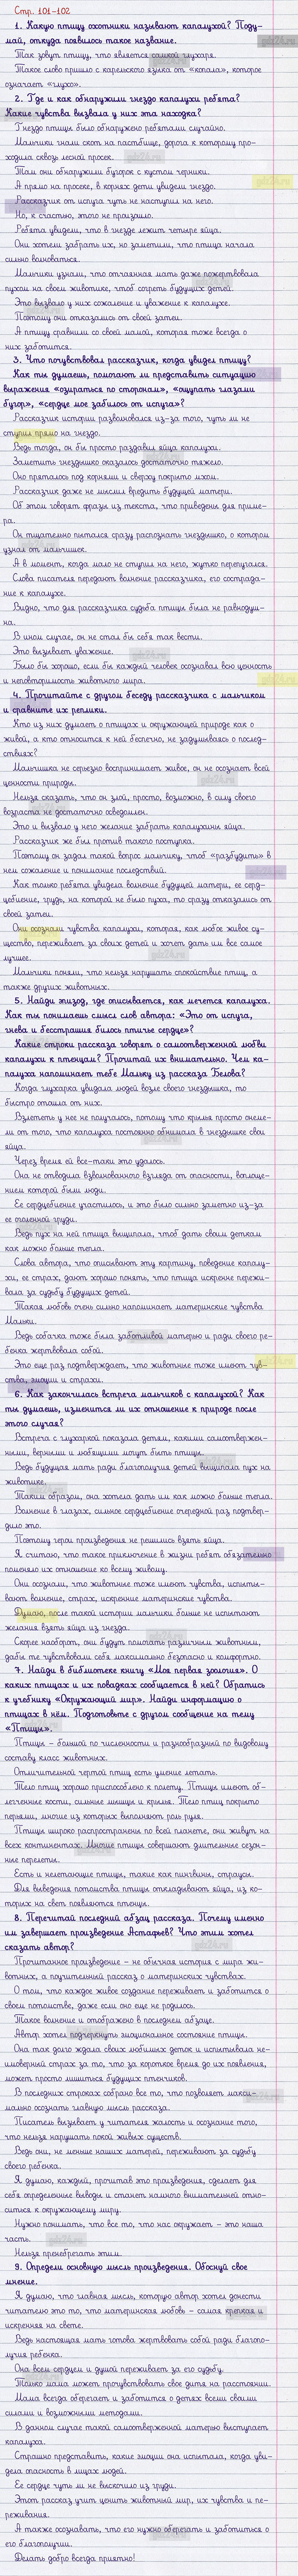 Стр. 101-102
1. Какую птицу охотники называют капалухой? Поду-
май, откуда появилось такое название.
Так зовут птицу, что является самкой глухаря.
Такое слово пришло с карельского языка от «копала», которое
означает «глухо».
2. Где и как обнаружили гнездо капалухи ребята?
Какие чувства вызвала у них эта находка?
Гнездо птицы было обнаружено ребятами случайно.
Мальчики гнали скот на пастбище, дорога к которому про-
ходила сквозь лесной просек.
Там они обнаружили бугорок с кустом черники.
А прямо на просеке, в корнях дети увидели гнездо.
Рассказчик от испуга чуть не наступил на него.
Но, к счастью, этого не произошло.
Ребята увидели, что в гнезде лежит четыре яйца.
Они хотели забрать их, но заметили, что птица начала
сильно волноваться.
Мальчики узнали, что отчаянная мать даже пожертвовала
пухом на своем животике, чтоб согреть будущих детей.
Это вызвало у них сожаление и уважение к капалухе.
Поэтому они отказались от своей затеи.
А птицу сравнили со своей мамой, которая тоже всегда о
них заботится.
3. Что почувствовал рассказчик, когда увидел птицу?
Как ты думаешь, помогают ли представить ситуацию
выражения «озираться по сторонам», «ощупать глазами
бугор», «сердце мое забилось от испуга»?
Рассказчик истории разволновался из-за того, чуть ли не
ступил прямо на гнездо.
Ведь тогда, он бы просто раздавил яйца капалухи.
Заметить гнездышко оказалось достаточно тяжело.
Оно пряталось под корнями и сверху покрыто мхом.
Рассказчик даже не мыслил вредить будущей матери.
Об этом говорят фразы из текста, что приведены для приме-
ра.
Он тщательно пытался сразу распознать гнездышко, о котором
узнал от мальчишек.
А в момент, когда мало не ступил на него, жутко перепугался.
Слова писателя передают волнение рассказчика, его сострада-
ние к капалухе.
Видно, что для рассказчика судьба птицы была не равнодуш-
на.
В ином случае, он не стал бы себя так вести.
Это вызывает уважение.
Было бы хорошо, если бы каждый человек осознавал всю ценность
и неповторимость животного мира.
4. Прочитайте с другом беседу рассказчика с мальчиком
и сравните их реплики.
Кто из них думает о птицах и окружающей природе как о
живой, а кто относится к ней беспечно, не задумываясь о послед-
ствиях?
Мальчишка не серьезно воспринимает живое, он не осознает всей
ценности природы.
Нельзя сказать, что он злой, просто, возможно, в силу своего
возраста не достаточно осведомлен.
Это и вызвало у него желание забрать капалухины яйца.
Рассказчик же был против такого поступка.
Потому он задал такой вопрос мальчику, чтоб «разбудить» в
нем сожаление и понимание последствий.
Как только ребята увидели волнение будущей матери, ее серд-
цебиение, грудь, на которой не было пуха, то сразу отказались от
своей затеи.
Они осознали чувства капалухи, которая, как любое живое су-
щество, переживает за своих детей и хочет дать им все самое
лучшее.
Мальчики поняли, что нельзя нарушать спокойствие птиц, а
также других животных.
5. Найди эпизод, где описывается, как мечется капалуха.
Как ты понимаешь смысл слов автора: «Это от испуга,
гнева и бесстрашия билось птичье сердце»?
Какие строки рассказа говорят о самоотверженной любви
капалухи к птенцам? Прочитай их внимательно. Чем ка-
палуха напоминает тебе Мальку из рассказа Белова?
Когда глухарка увидала людей возле своего гнездышка, то
быстро отошла от них.
Взлететь у нее не получалось, потому что крылья просто онеме-
ли от того, что капалуха постоянно обнимала в гнездышке свои
яйца.
Через время ей все-таки это удалось.
Она не отводила взволнованного взгляда от опасности, воплоще-
нием которой были люди.
Ее сердцебиение участилось, и это было сильно заметно из-за
ее оголенной груди.
Ведь пух на ней птица выщипала, чтоб дать своим деткам
как можно больше тепла.
Слова автора, что описывают эту картину, поведение капалу-
хи, ее страх, дают хорошо понять, что птица искренне пережи-
вала за судьбу будущих детей.
Такая любовь очень сильно напоминает материнские чувства
Мальки.
Ведь собачка тоже была заботливой матерью и ради своего ре-
бенка жертвовала собой.
Это еще раз подтверждает, что животные тоже имеют чув-
ства, эмоции и страхи.
6. Как закончилась встреча мальчиков с капалухой? Как
ты думаешь, изменится ли их отношение к природе после
этого случая?
Встреча с глухаркой показала детям, какими самоотвержен-
ными, верными и любящими могут быть птицы.
Ведь будущая мать ради благополучия детей выщипала пух на
животике.
Таким образом, она хотела дать им как можно больше тепла.
Волнение в глазах, сильное сердцебиение очередной раз подтвер-
дило это.
Поэтому герои произведения не решились взять яйца.
Я считаю, что такое приключение в жизни ребят обязательно
поменяло их отношение ко всему живому.
Они осознали, что животные тоже имеют чувства, испыты-
вают волнение, страх, искренние материнские чувства.
Думаю, после такой истории мальчики больше не испытают
желания взять яйца из гнезда.
Скорее наоборот, они будут помогать различным животным,
дабы те чувствовали себя максимально безопасно и комфортно.
7. Найди в библиотеке книгу «Моя первая зоология». О
каких птицах и их повадках сообщается в ней? Обратись
к учебнику «Окружающий мир». Найди информацию о
птицах в нём. Подготовьте с другом сообщение на тему
«Птицы».
Птицы – большой по численности и разнообразный по видовому
составу класс животных.
Отличительной чертой птиц есть умение летать.
Тело птиц хорошо приспособлено к полету. Птицы имеют об-
легченные кости, сильные мышцы и крылья. Тело птиц покрыто
перьями, многие из которых выполняют роль руля.
Птицы широко распространены по всей планете, они живут на
всех континентах. Многие птицы совершают длительные сезон-
ные перелеты.
Есть и нелетающие птицы, такие как пингвины, страусы.
Для выведения потомства птицы откладывают яйца, из ко-
торых на свет появляются птенцы.
8. Перечитай последний абзац рассказа. Почему именно
им завершает произведение Астафьев? Что этим хотел
сказать автор?
Прочитанное произведение – не обычная история с мира жи-
вотных, а поучительный рассказ о материнских чувствах.
О том, что каждое живое создание переживает и заботится о
своем потомстве, даже если оно еще не родилось.
Такое волнение и отображено в последнем абзаце.
Автор хотел подчеркнуть эмоциональное состояние птицы.
Она так долго ждала своих любимых деток и испытывала не-
имоверный страх за то, что за короткое время до их появления,
может просто лишиться будущих птенчиков.
В последних строках собрано все то, что позволяет макси-
мально осознать главную мысль рассказа.
Писатель вызывает у читателя жалость и осознание того,
что нельзя нарушать покой живых существ.
Ведь они, не меньше наших матерей, переживают за судьбу
своего ребенка.
Я думаю, каждый, прочитав это произведение, сделает для
себя определенные выводы и станет намного внимательней отно-
ситься к окружающему миру.
Нужно понимать, что все то, что нас окружает – это наша
часть.
Нельзя пренебрегать этим.
9. Определи основную мысль произведения. Обоснуй свое
мнение.
Я думаю, что главная мысль, которую автор хотел донести
читателю это то, что материнская любовь – самая крепкая и
искренняя на свете.
Ведь настоящая мать готова жертвовать собой ради благопо-
лучия ребенка.
Она всем сердцем и душой переживает за его судьбу.
Только мама может прочувствовать свое дитя на расстоянии.
Мама всегда оберегает и заботится о детях всеми своими
силами и возможными методами.
В данном случае такой самоотверженной матерью выступает
капалуха.
Страшно представить, какие эмоции она испытала, когда уви-
дела опасность в лицах людей.
Ее сердце чуть ли не выскочило из груди.
Этот рассказ учит ценить животный мир, их чувства и пе-
реживания.
А также осознавать, что его нужно оберегать и заботиться о
его благополучии.
Делать добро всегда приятно!